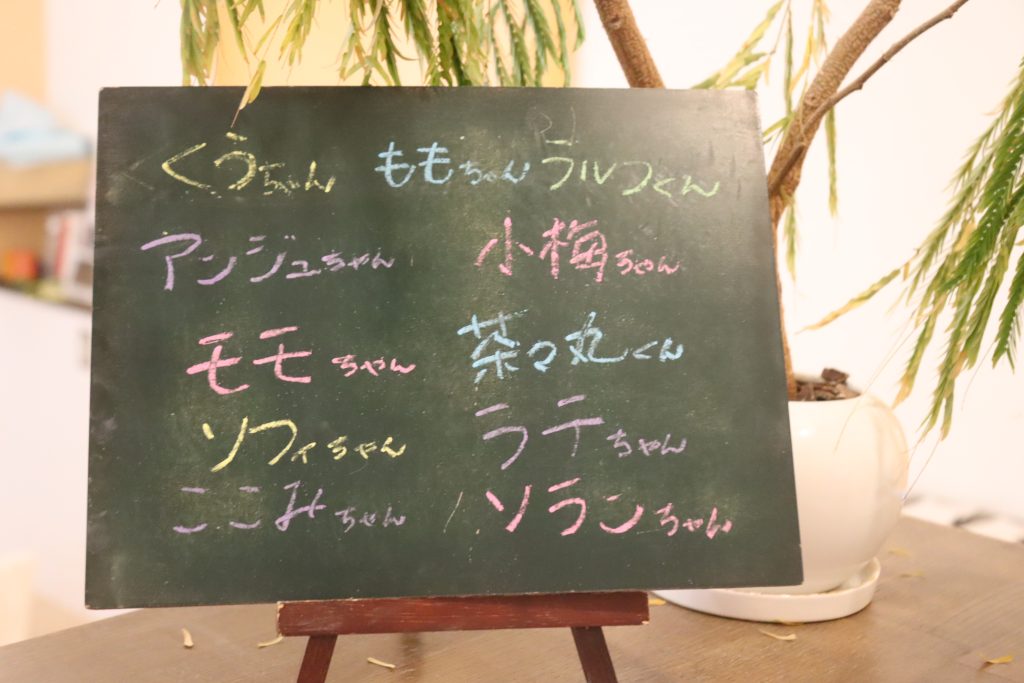 くうちゃん ももちゃん ラルフくん
アンジュちゃん 小梅ちゃん
モモちゃん 茶々丸くん
ソフィちゃん ラテちゃん
ここみちゃん ソランちゃん